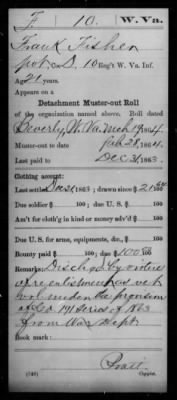 F 10. W. Va.
Frank Fisher
pvt Co. D, 10 Reg't W. Va. Inf.
Age 21 years.
Appears on a
Detachment Muster-out Roll
of the organization named above. Roll dated
Beverly, W. Va. Mch 19, 1864.
Muster-out to date Feb 28, 1864.
Last paid to Dec 31, 1863.
Clothing account:
Last settled Dec 31, 1863; drawn since $ 21 100
Due soldier $ 100; due U. S. $ 100
Am't for cloth'g in kind or money adv'd $ 100
Due U. S. for arms, equipments, &c., $ 100
Bounty paid $ 100; due $ 100 00 100
Remarks: Dischgd by order
of re enlistment as vet
vol under the provision
of G.O 191 series of 1863
from War Dept.
Book mark:
Pratt
(340) Copyist.